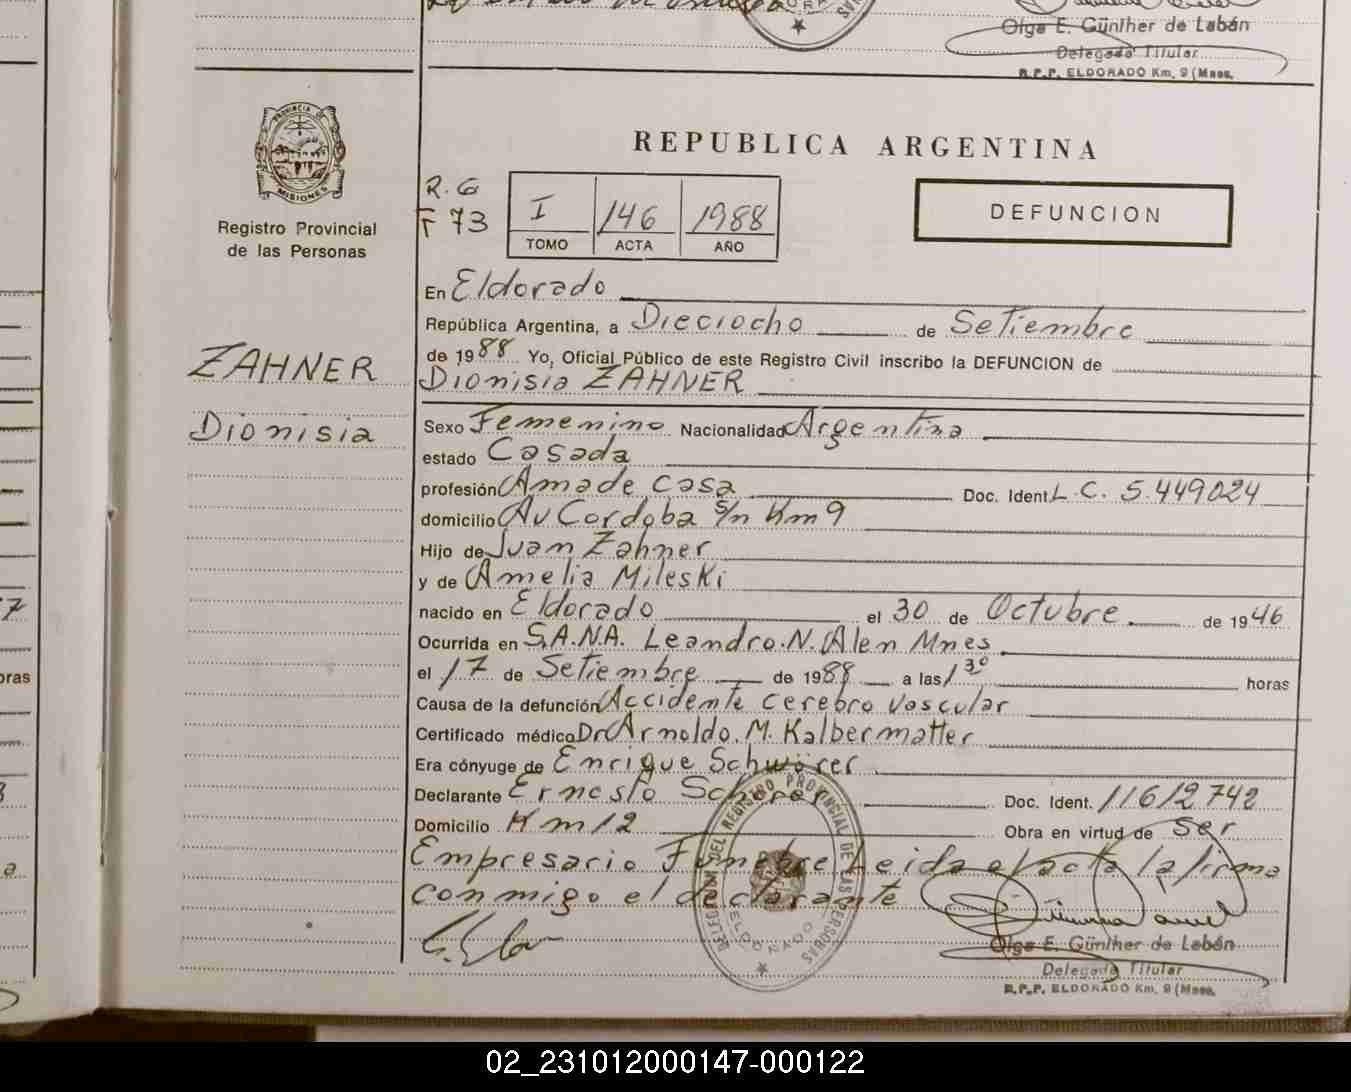 Olga E. Günther de Labán
Delegada Titular
R.P.P. ELDORADO Km. 9 (Mnes.
PROVINCIA DE
MISIONES
Registro Provincial
de las Personas
REPUBLICA ARGENTINA
R. G
F 73
I 146 1988
TOMO ACTA AÑO
DEFUNCION
En Eldorado
República Argentina, a Dieciocho de Setiembre
de 1988 Yo, Oficial Público de este Registro Civil inscribo la DEFUNCION de
Dionisia ZAHNER
ZAHNER
Dionisia
Sexo Femenino Nacionalidad Argentina
estado Casada
profesión Ama de casa Doc. Ident. L.C. 5.449024
domicilio Av Cordoba s/n Km 9
Hijo de Juan Zahner
y de Amelia Mileski
nacido en Eldorado el 30 de Octubre de 1946
Ocurrida en S.A.N.A. Leandro.N.Alen Mnes
el 17 de Setiembre de 1988 a las 1 30 horas
Causa de la defunción Accidente cerebro vascular
Certificado médico Dr Arnoldo. M. Kalbermatter
Era cónyuge de Enrique Schwörer
Declarante Ernesto Doc. Ident. 11612742
Domicilio Km 12 Obra en virtud de Ser
Empresario Funebre Leida el acta la firma
conmigo el declarante
DELEGACION DEL REGISTRO PROVINCIAL DE LAS PERSONAS
ELDORADO
Olga E. Günther de Labán
Delegada Titular
R.P.P. ELDORADO Km. 9 (Mnes.
02_231012000147-000122